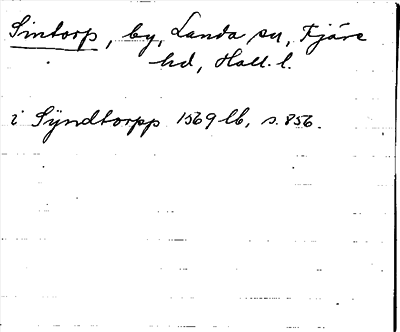 Sintorp, by, Landa sn, Fjäre
hd, Hall. l.
i Sÿndtorpp 1569 lb, s. 856.